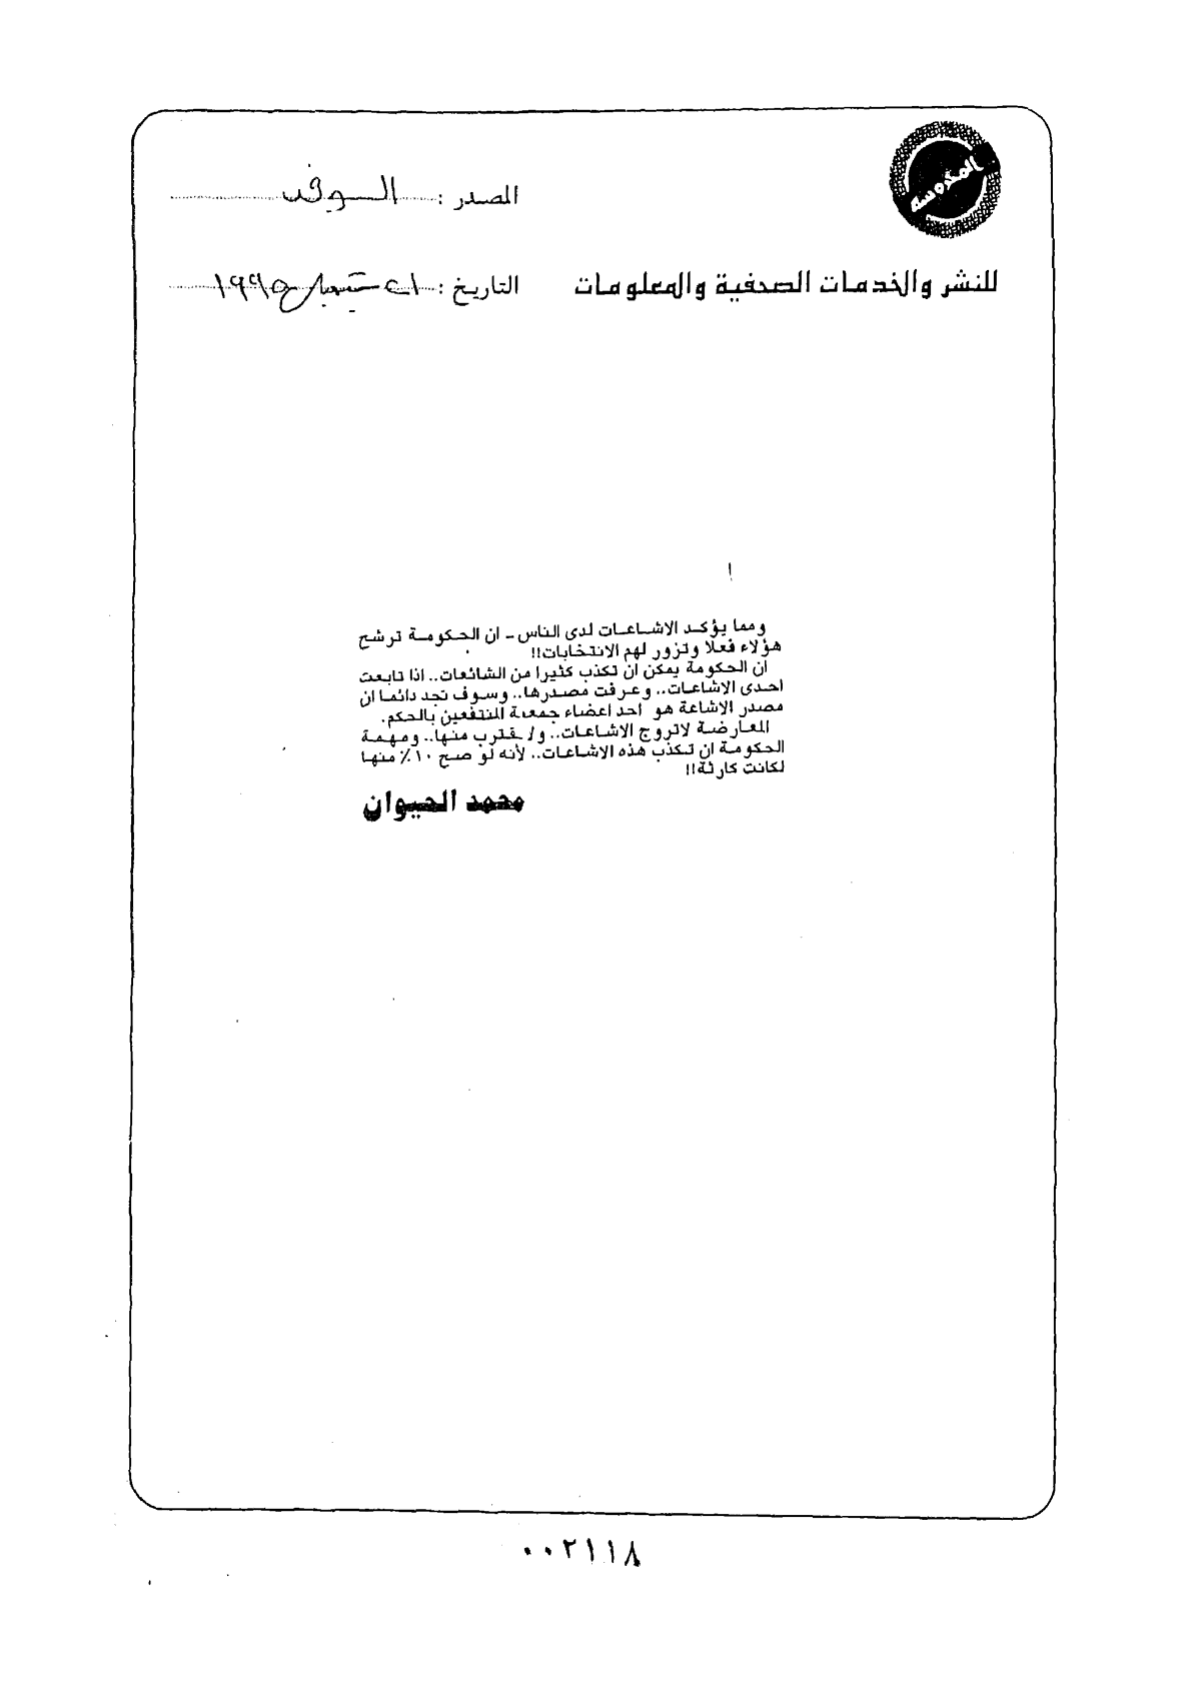 المدوسة
المصدر : الوفد
للنشر والخدمات الصحفية والمعلومات
التاريخ : ٢١ سبتمبر ١٩٩٥
!
ومما يؤكد الاشاعات لدى الناس - ان الحكومة ترشح
هؤلاء فعلا وتزور لهم الانتخابات!!
ان الحكومة يمكن ان تكذب كثيرا من الشائعات.. اذا تابعت
احدى الاشاعات.. وعرفت مصدرها.. وسوف تجد دائما ان
مصدر الاشاعة هو احد اعضاء جمعية المنتفعين بالحكم.
المعارضة لاتروج الاشاعات.. ولا تقترب منها.. ومهمة
الحكومة ان تكذب هذه الاشاعات.. لأنه لو صح ١٠٪ منها
لكانت كارثة!!
محمد الحيوان
٠٠٢١١٨